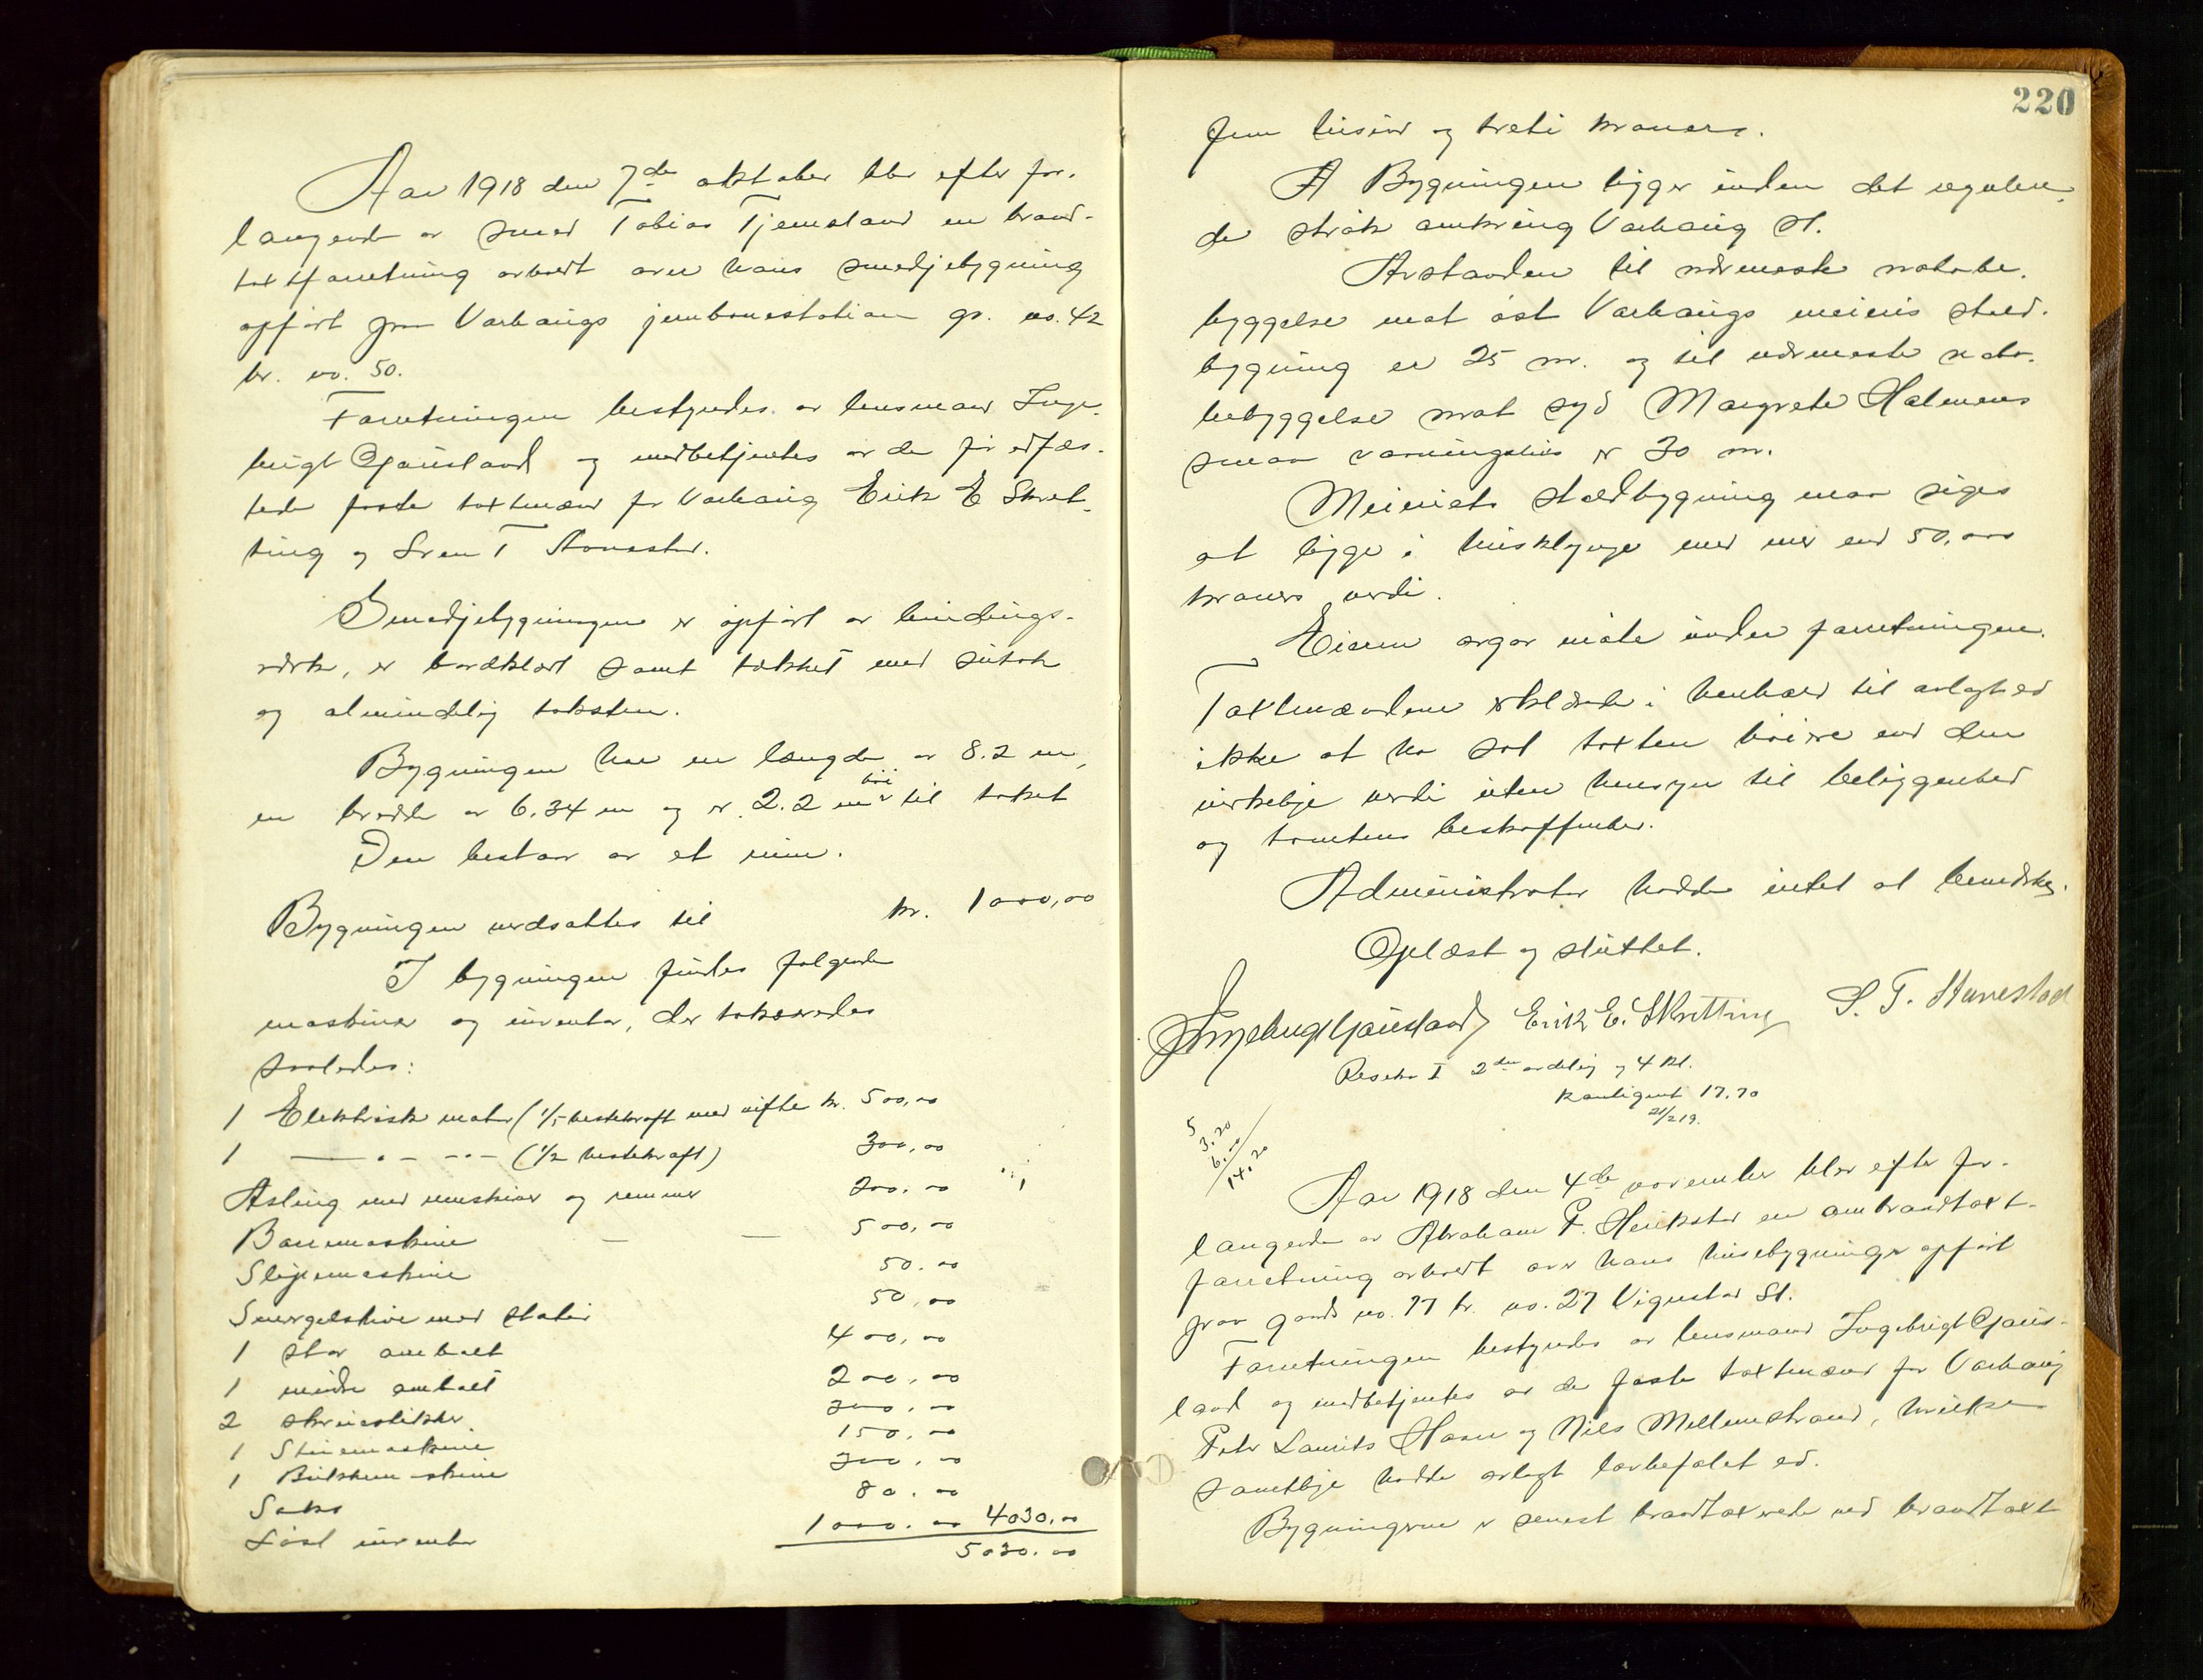 Aar 1918 den 7de oktober blev efter for-
langende av smed Tobias Tjemsland en brand-
taxtforretning avholdt over hans smedjebygning
opført paa Varhaugs jernbanestation gr. no. 42
br. no. 50.
Forretningen bestyredes av lensmand Inge-
brigt Gausland og medbetjentes av de før edfæs-
tede faste taxtmænd for Varhaug Erik E Skret-
ting og Sven T Stavnestad.
Smedjebygningen er opført av bindings-
værk, er bordklædt samt tækket med sutak
og almindelig taksten.
Bygningen har en længde av 8.2 m,
en bredde av 6.34 m og er 2.2 m høi til taket
Den bestaar av et rum.
Bygningen verdsattes til kr. 1000,00
I bygningen findes følgende
maskiner og inventar, der takseredes
saaledes:
1 Elektrisk motor (1/5 hestekraft med vifte kr. 500,00
1 — " — " — (1/2 hestekraft) 300,00
Asling med remskiver og remmer 200.00
Boremaskine 500,00
Slipemaskine 50.00
Smergelskive med stativ 50,00
1 stor ambolt 400,00
1 mindre ambolt 200,00
2 skruestikker 300.00
1 Stukemaskine 150.00
1 300.00
Saks 80.00
Løst inventar 1000.00 4030,00
5030.00
220
fem tusind og treti kroner.
Bygningen ligger inden det regulere-
de strøk omkring Varhaug St.
Avstanden til nærmeste nabobe-
byggelse mot øst Varhaugs meieris stald-
bygning er 25 m. og til nærmeste nabo-
bebyggelse mot syd Margrete Holmens
smaa vaaningshus er 30 m.
Meieriets staldbygning maa siges
at ligge i husklynge med mer end 50,000
kroners verdi.
Eieren var tilstede under forretningen.
Taxtmændene erklærte i henhold til avlagt ed
ikke at ha sat taxten høiere end den
virkelige verdi uten hensyn til beliggenhed
og tomtens beskaffenhet.
Administrator hadde intet at bemerke.
Oplæst og sluttet.
Ingebrigt Gausland Erik E. Skretting S. T. Stavnestad
2den avdeling og 4 kl.
Kontigent 17.70
21/2 19.
5
3.20
6.00
14.20
Aar 1918 den 4de november blev efter for-
langende av Abraham P. Herikstad en ombrandtaxt-
forretning avholdt over hans husebygninger opført
paa gaards no. 17 br. no. 27 Vigrestad St.
Forretningen bestyredes av lensmand Ingebrigt Gaus-
land og medbetjentes av de faste taxtmænd for Varhaug
Peder Laurits Haaver og Nils Mellemstrand, hvilke
samtlige hadde avlagt lovbefalet ed.
Bygningerne er senest brandtaxerede ved brandtaxt